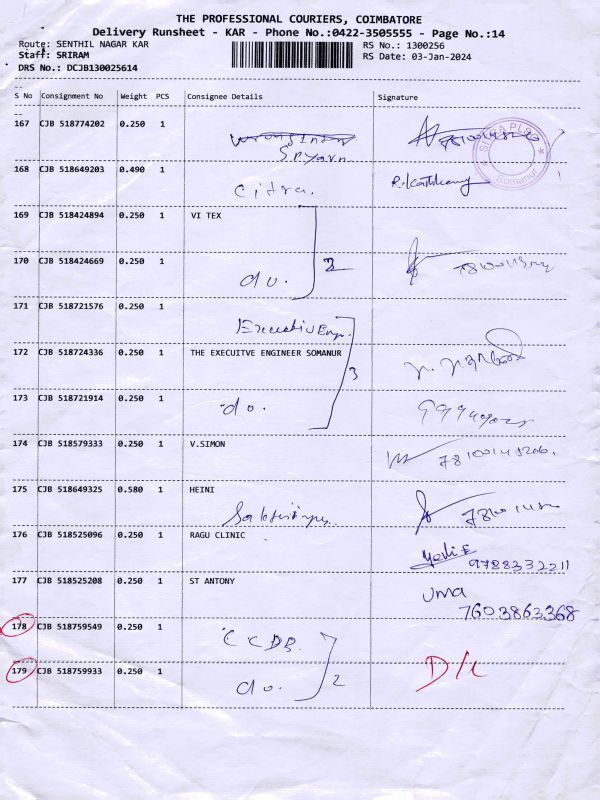 THE PROFESSIONAL COURIERS, COIMBATORE
Delivery Runsheet - KAR - Phone No.:0422-3505555 - Page No.:14
Route: SENTHIL NAGAR KAR RS No.: 1300256
Staff: SRIRAM RS Date: 03-Jan-2024
DRS No.: DCJB130025614
S No Consignment No Weight PCS Consignee Details Signature
167 CJB 518774202 0.250 1
S.P.Yarn
168 CJB 518649203 0.490 1
Citra.
169 CJB 518424894 0.250 1 VI TEX
170 CJB 518424669 0.250 1
do.
171 CJB 518721576 0.250 1
Executive Eng.
172 CJB 518724336 0.250 1 THE EXECUITVE ENGINEER SOMANUR
3
173 CJB 518721914 0.250 1
do.
174 CJB 518579333 0.250 1 V.SIMON
175 CJB 518649325 0.580 1 HEINI
176 CJB 518525096 0.250 1 RAGU CLINIC
9788332211
177 CJB 518525208 0.250 1 ST ANTONY
Uma
7603863368
178 CJB 518759549 0.250 1
CCDB.
179 CJB 518759933 0.250 1
do. 2
D/L
Somanur